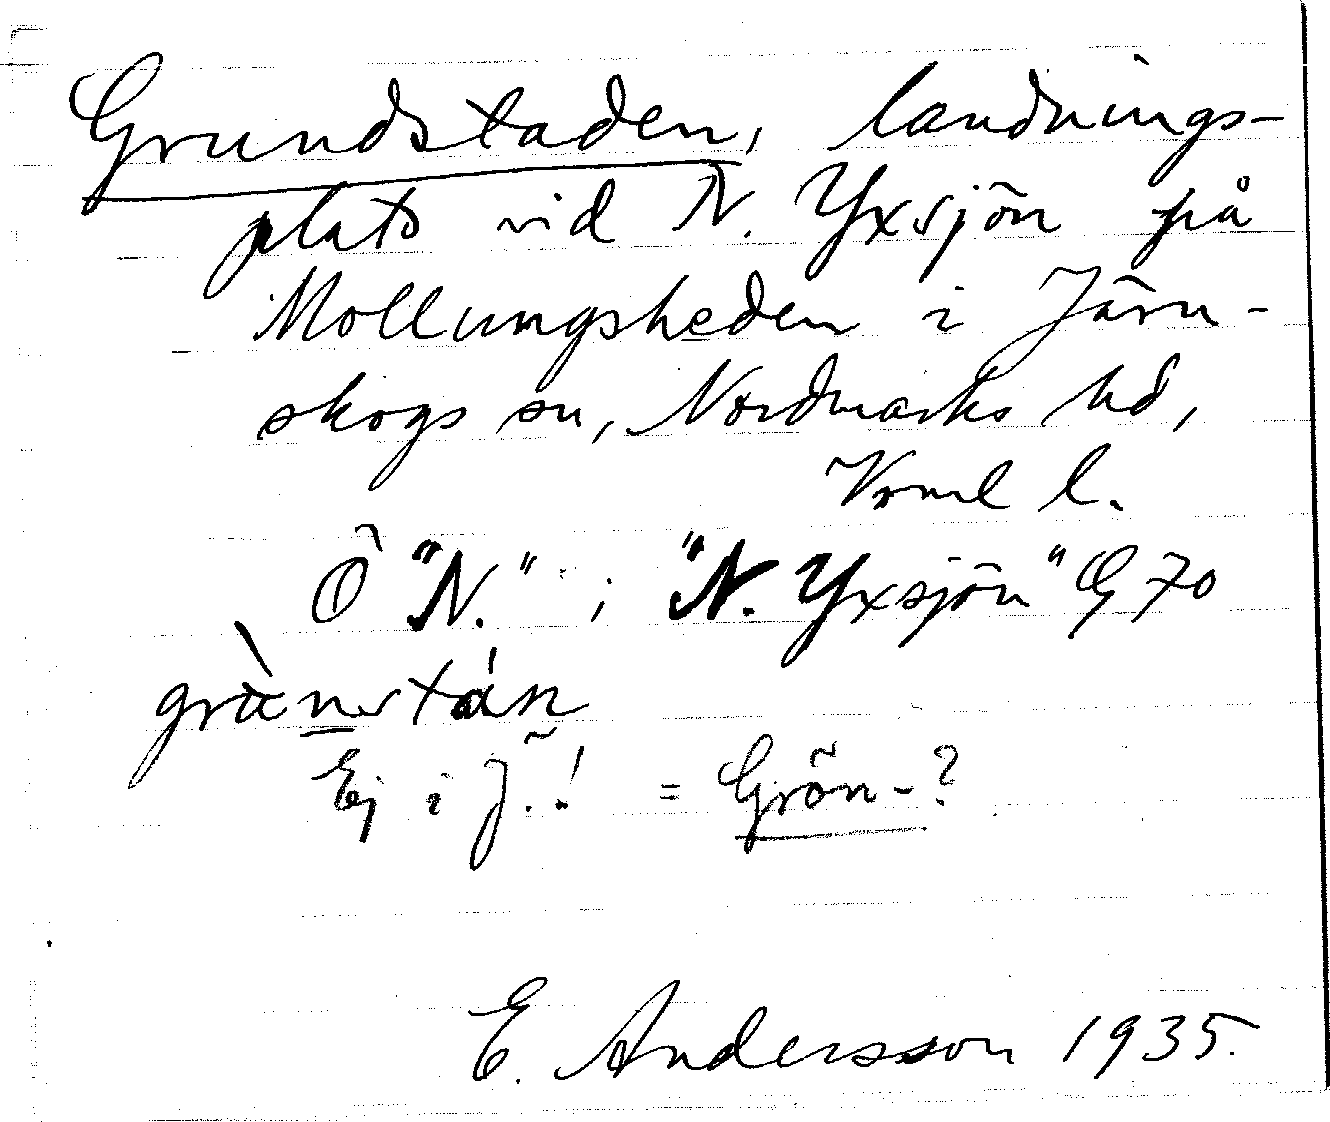 Grundstaden, landnings-
plats vid N. Yxsjön på
Mollungsheden i Järn-
skogs sn, Nordmarks hd,
Vrml l.
Ö "N." i "N. Yxsjön" G 70
Ej i J.! = Grön-?
E. Andersson 1935.